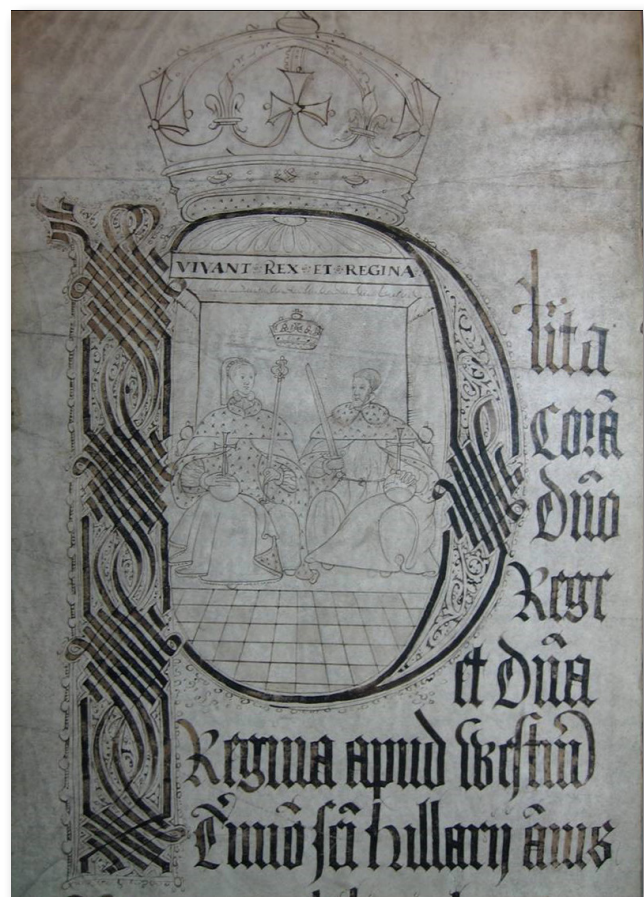 VIVANT · REX · ET · REGINA
Plita
Corā
Dn̄o
Rege
et Dn̄a
Regina apud Westm̄
T̄mīo sc̄i hillarij ānis